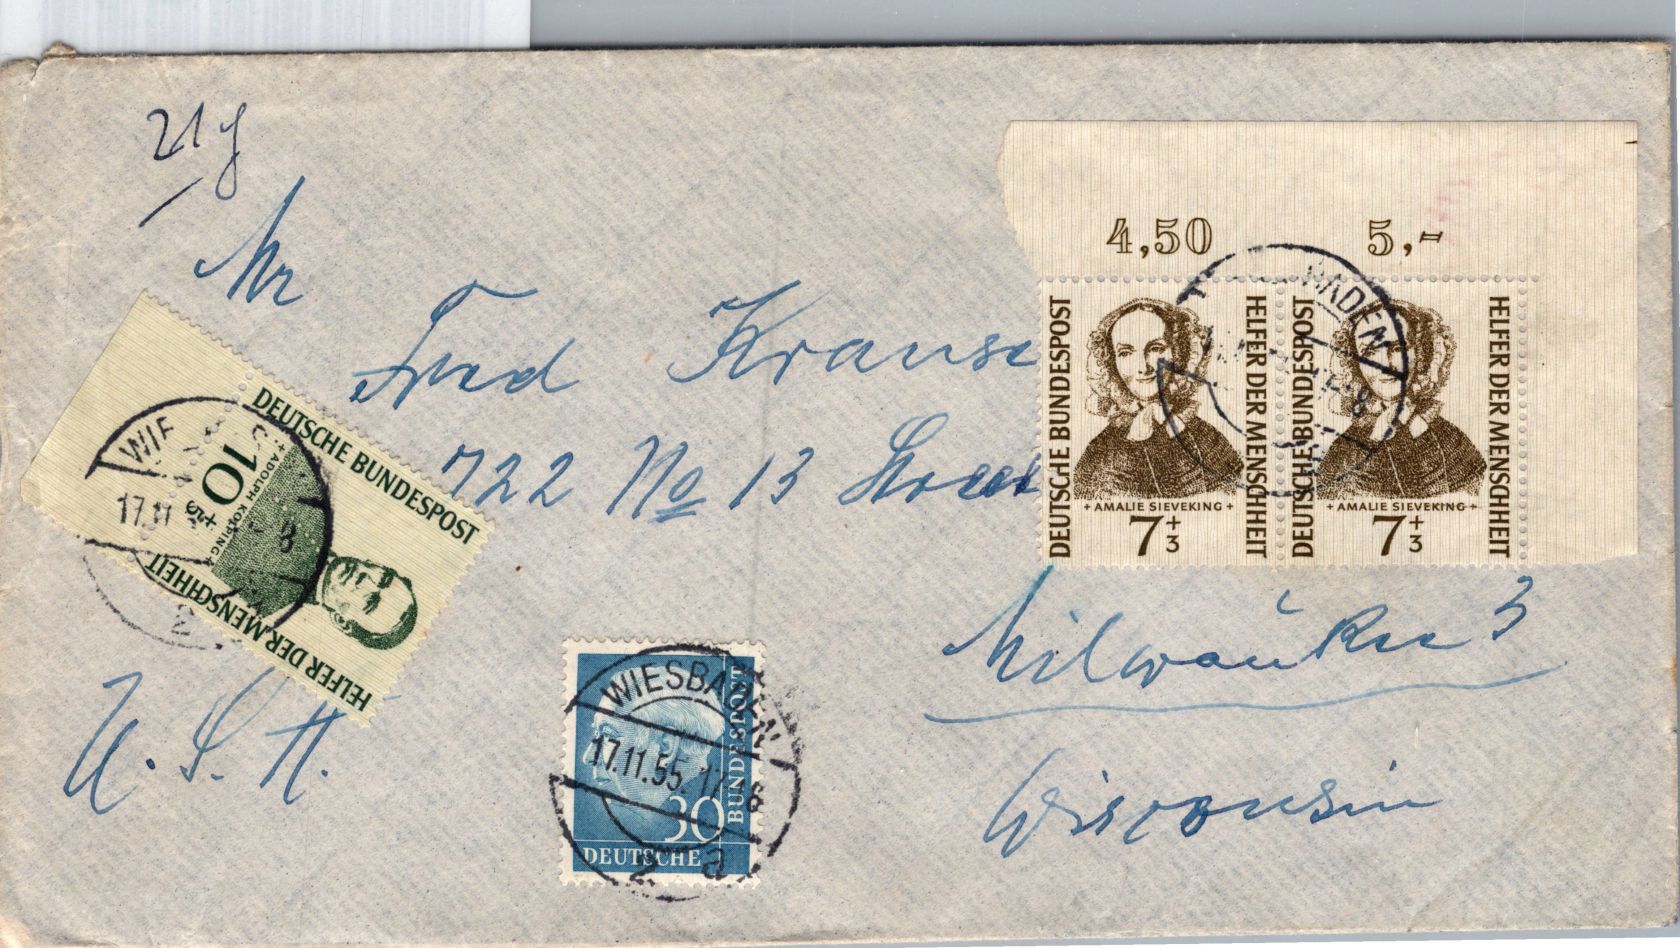 21 g
Mr
Fred Krause
722 No 13 Street
Milwaukee 3
Wisconsin
U. S. A.
4,50 5,-
DEUTSCHE BUNDESPOST
HELFER DER MENSCHHEIT
+ AMALIE SIEVEKING +
7+3
DEUTSCHE BUNDESPOST
HELFER DER MENSCHHEIT
+ AMALIE SIEVEKING +
7+3
BADEN
DEUTSCHE BUNDESPOST
+ ADOLPH KOLPING +
10+5
HELFER DER MENSCHHEIT
WIE
17.11
8
2
BUNDESPOST
30
DEUTSCHE
WIESBADEN
17.11.55. 17-18
2 a